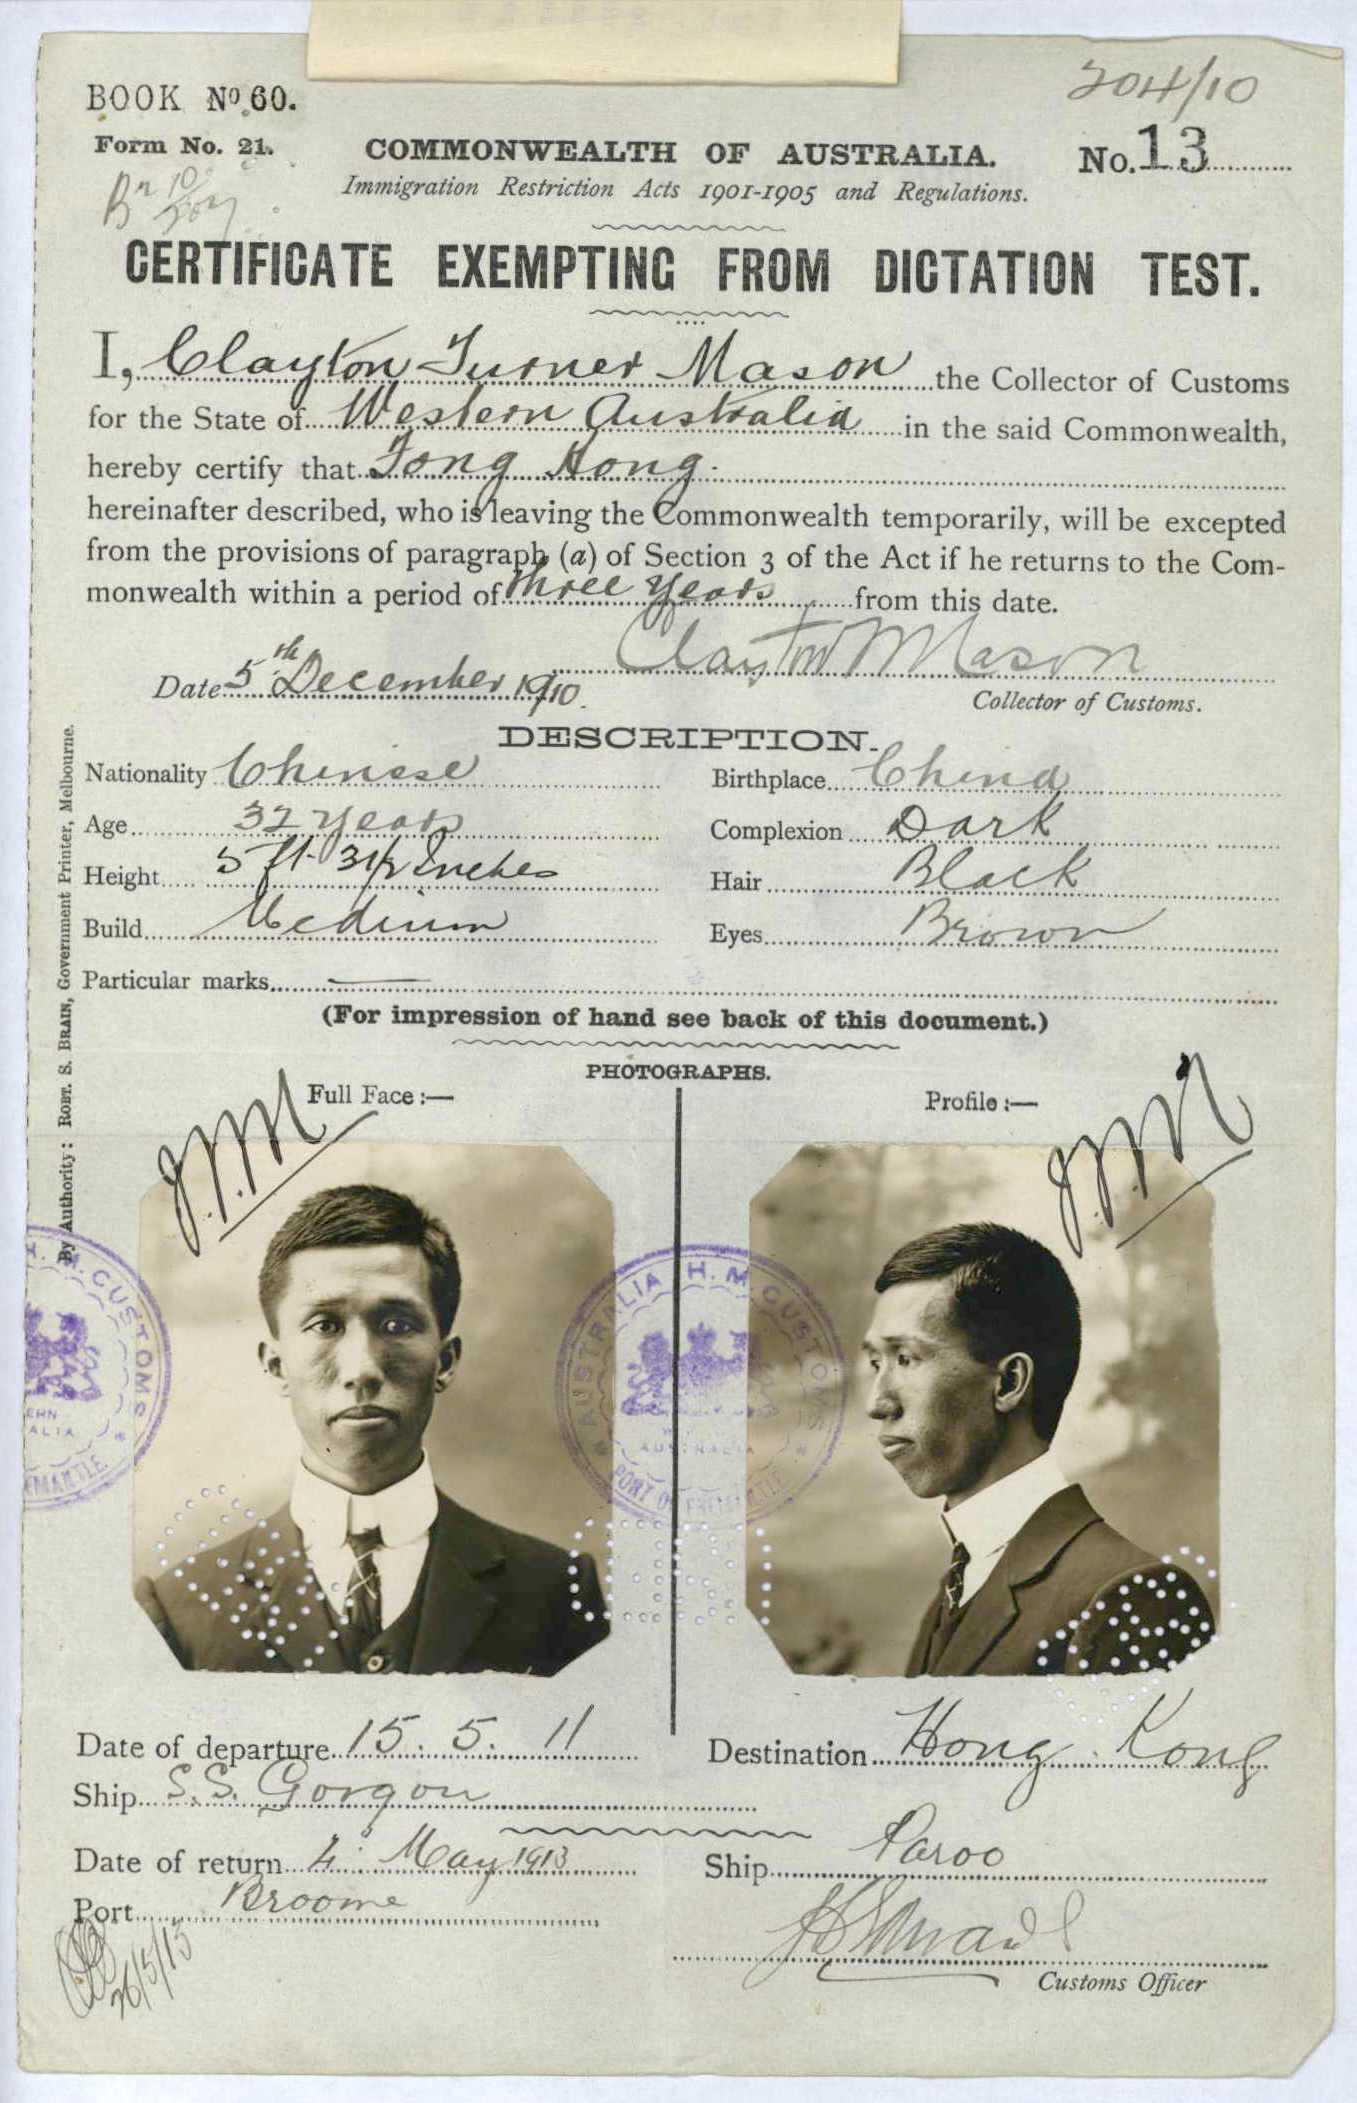 BOOK No. 60.
204/10
Form No. 21.
COMMONWEALTH OF AUSTRALIA.
No. 13
Immigration Restriction Acts 1901-1905 and Regulations.
CERTIFICATE EXEMPTING FROM DICTATION TEST.
I, Clayton Turner Mason the Collector of Customs
for the State of Western Australia in the said Commonwealth,
hereby certify that Fong Hong.
hereinafter described, who is leaving the Commonwealth temporarily, will be excepted
from the provisions of paragraph (a) of Section 3 of the Act if he returns to the Com-
monwealth within a period of three years from this date.
Clayton T Mason
Date 5th December 1910.
Collector of Customs.
DESCRIPTION.
Nationality Chinese
Birthplace China
Age 32 years
Complexion Dark
Height 5 ft. 3 1/2 Inches
Hair Black
Build Medium
Eyes Brown
Particular marks —
(For impression of hand see back of this document.)
PHOTOGRAPHS.
Full Face :—
Profile :—
By Authority: ROBT. S. BRAIN, Government Printer, Melbourne.
H. M. CUSTOMS
AUSTRALIA H. M. CUSTOMS
AUSTRALIA
PORT OF FREMANTLE
Date of departure 15. 5. 11
Destination Hong Kong
Ship S.S. Gorgon
Date of return 4. May 1913
Ship Paroo
Port Broome
26/5/13
Customs Officer